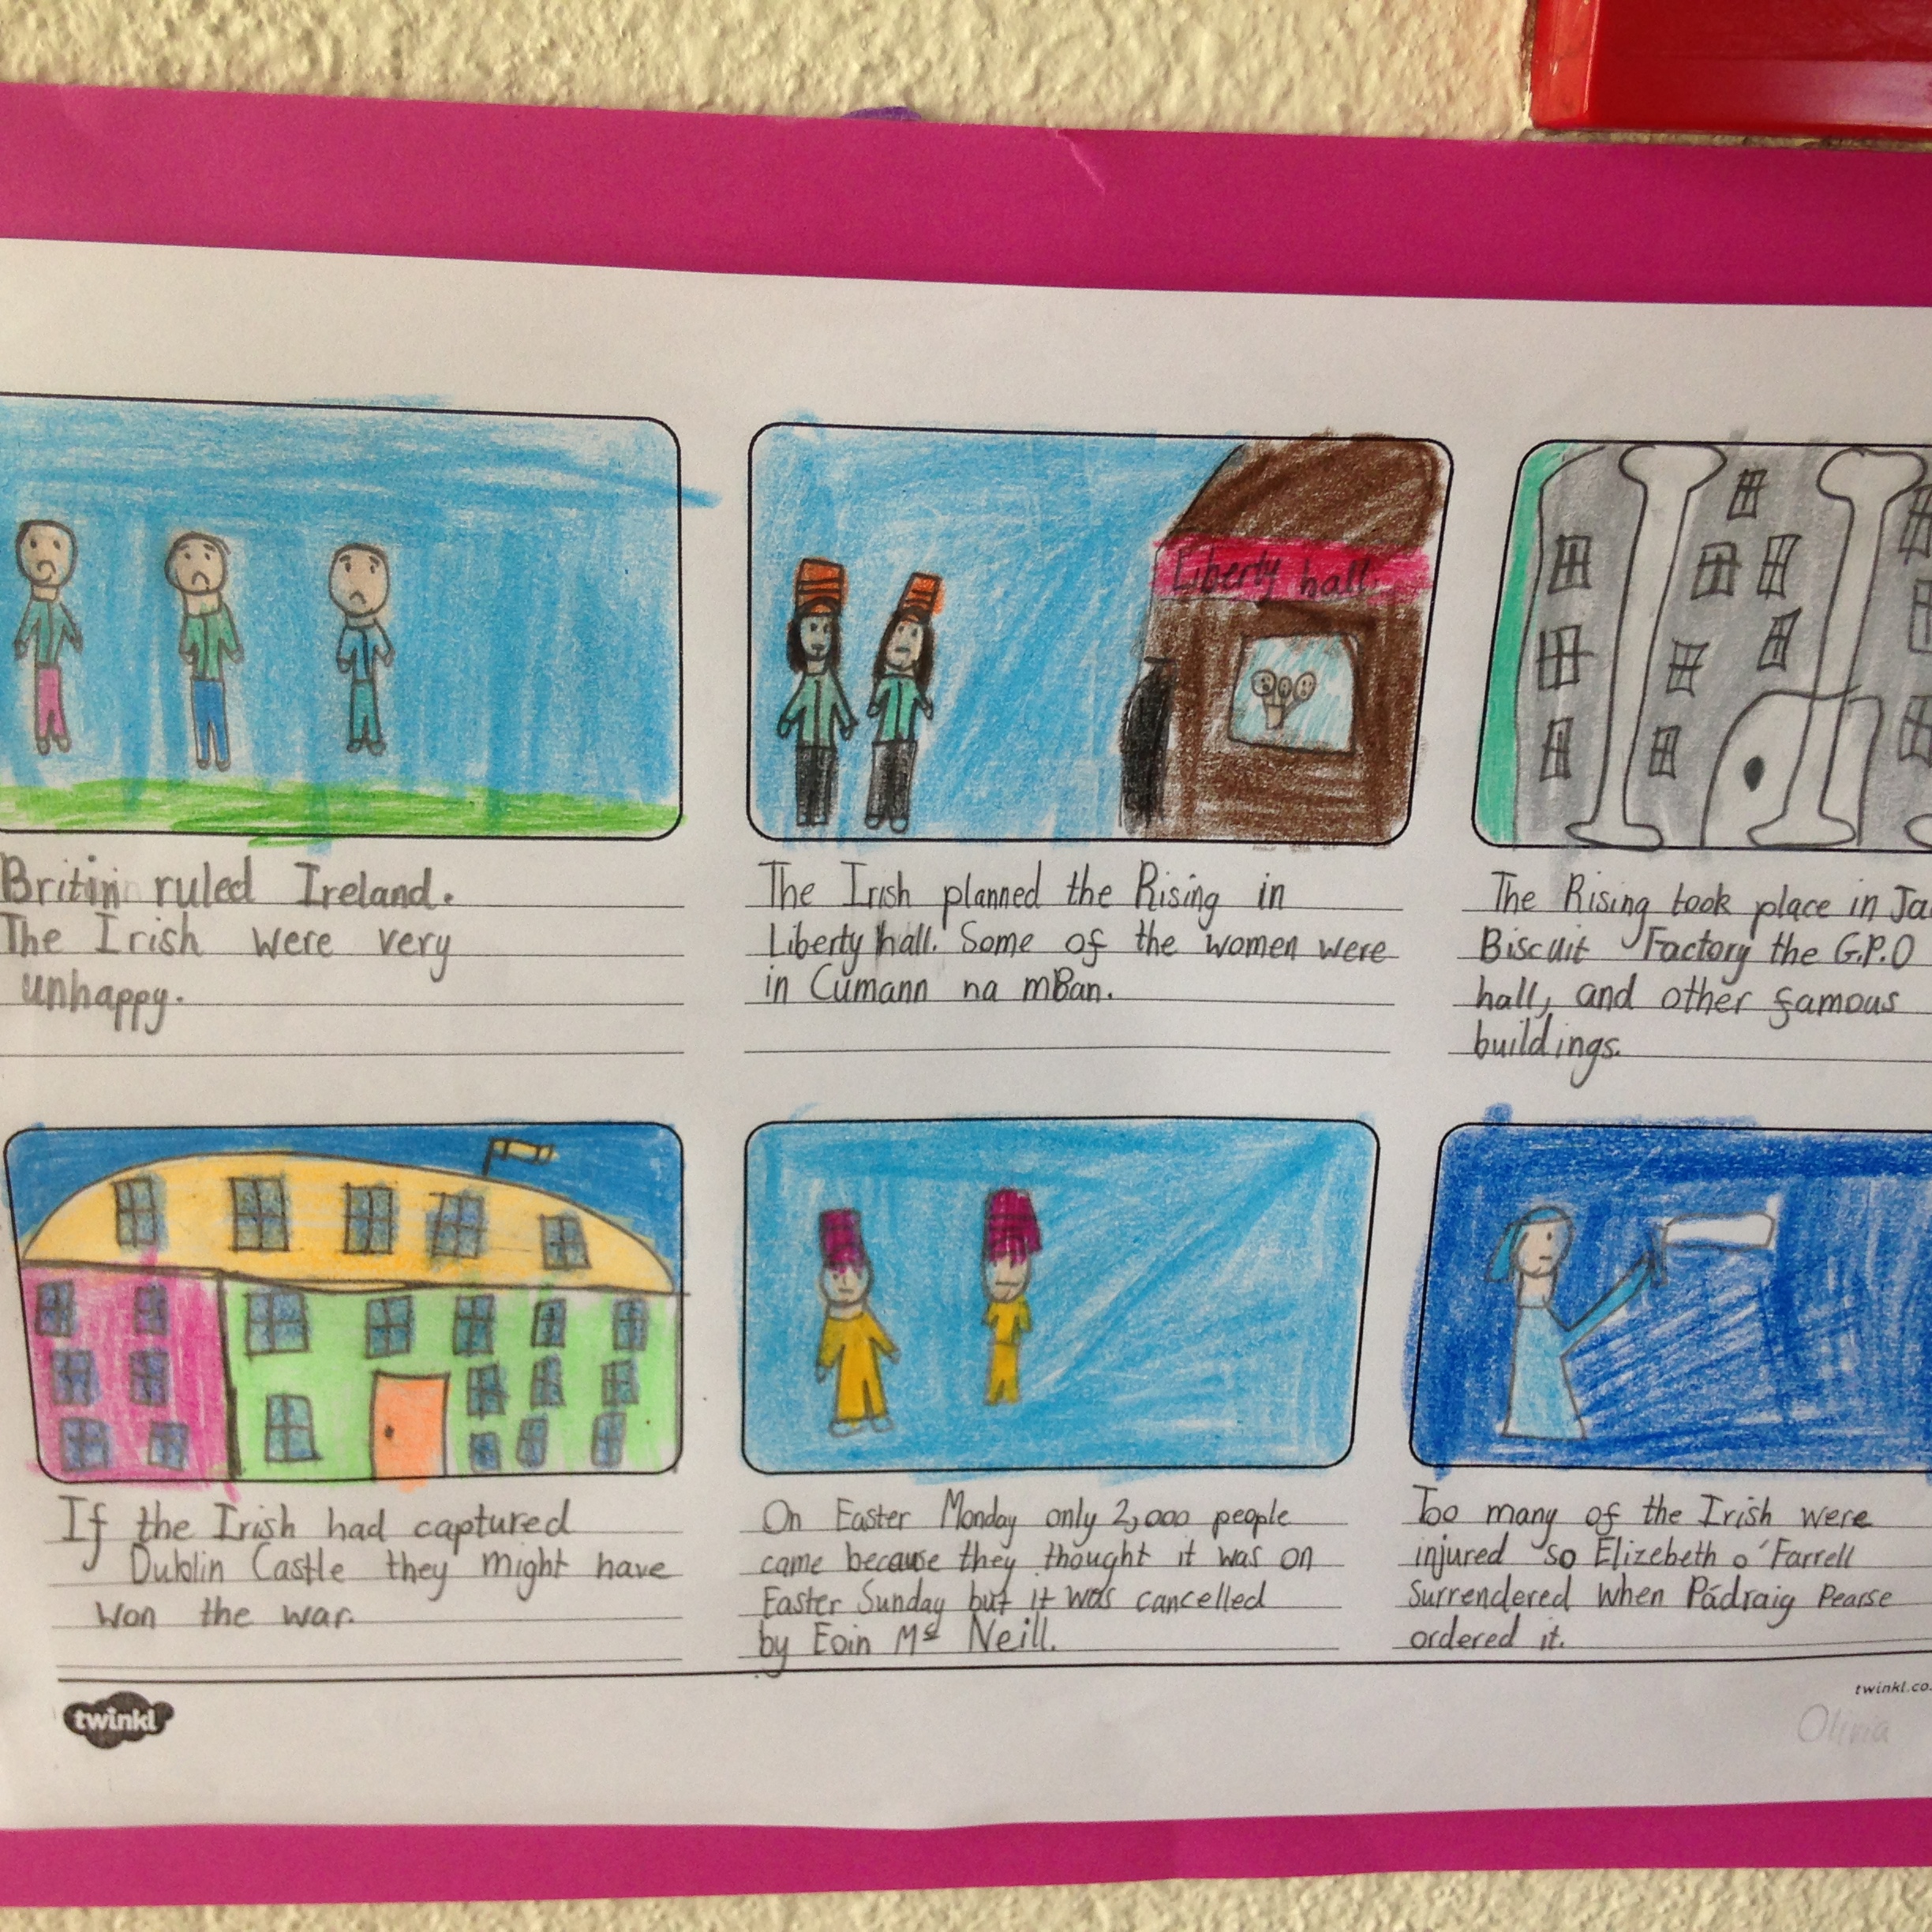 Liberty hall.
Britin ruled Ireland.
The Irish were very
unhappy.
The Irish planned the Rising in
Liberty hall. Some of the women were
in Cumann na mBan.
The Rising took place in
Biscuit Factory the G.P.O
hall, and other famous
buildings.
If the Irish had captured
Dublin Castle they might have
won the war.
On Easter Monday only 2,000 people
came because they thought it was on
Easter Sunday but it was cancelled
by Eoin Mc Neill.
Too many of the Irish were
injured so Elizebeth o'Farrell
surrendered when Pádraig Pearse
ordered it.
twinkl
twinkl.co.
Olivia